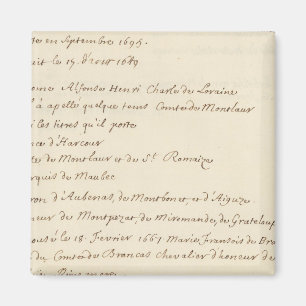 te en Septembre 1695.
ait le 15 d'Aout 1649
ence Alfonse Henri Charle de Loraine
l'a apellé quelque tems Comte de Montlaur
i les titres qu'il porte
nce d'Harcour
te de Montlaur et de St. Romaize
rquis de Maubec
ron d'Aubenas, de Montbonet, et d'Aiguze
neur de Montpezat, de Miremande, de Grateloup
ousé le 18. Fevrier 1667 Marie, Fransois de Bra
du Comte de Brancas Chevalier d'honeur de